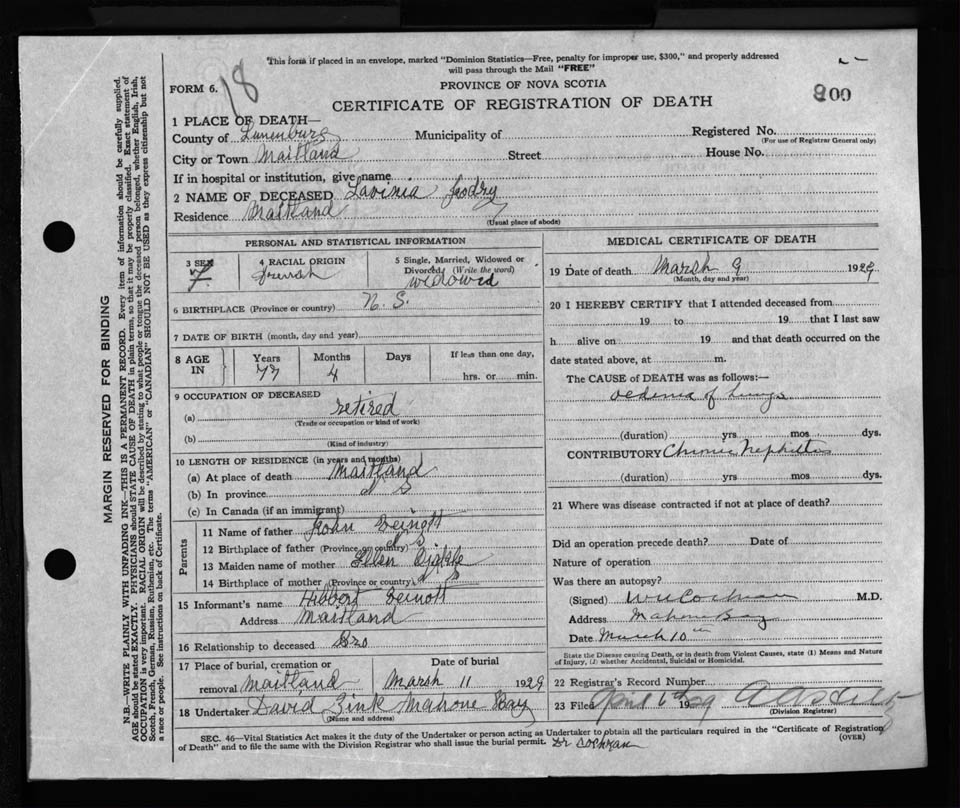 This form if placed in an envelope, marked "Dominion Statistics—Free, penalty for improper use, $300," and properly addressed
will pass through the Mail "FREE"
FORM 6. 18
PROVINCE OF NOVA SCOTIA
CERTIFICATE OF REGISTRATION OF DEATH
800
1 PLACE OF DEATH—
County of Lunenburg Municipality of Registered No.
(For use of Registrar General only)
City or Town Maitland Street House No.
If in hospital or institution, give name
2 NAME OF DECEASED Lavinia
Residence Maitland
(Usual place of abode)
PERSONAL AND STATISTICAL INFORMATION
3 SEX
F.
4 RACIAL ORIGIN
French
5 Single, Married, Widowed or
Divorced (Write the word)
widowed
6 BIRTHPLACE (Province or country) N. S.
7 DATE OF BIRTH (month, day and year)
8 AGE IN
Years
77
Months
4
Days
If less than one day,
hrs. or min.
9 OCCUPATION OF DECEASED
(a) retired
(Trade or occupation or kind of work)
(b)
(Kind of industry)
10 LENGTH OF RESIDENCE (in years and months)
(a) At place of death Maitland
(b) In province N S
(c) In Canada (if an immigrant)
Parents
11 Name of father John
12 Birthplace of father (Province or country) N S
13 Maiden name of mother Ellen
14 Birthplace of mother (Province or country) N S
15 Informant's name Hibbert
Address Maitland
16 Relationship to deceased Bro
17 Place of burial, cremation or
removal Maitland
Date of burial
Marsh 11 1929
18 Undertaker David Zink Mahone Bay
(Name and address)
MEDICAL CERTIFICATE OF DEATH
19 Date of death Marsh 9 1929
(Month, day and year)
20 I HEREBY CERTIFY that I attended deceased from
19 to 19 that I last saw
h alive on 19 and that death occurred on the
date stated above, at m.
The CAUSE of DEATH was as follows:—
oedema of Lungs
(duration) yrs mos dys.
CONTRIBUTORY Chronic Nephritis
(duration) yrs mos dys.
21 Where was disease contracted if not at place of death?
Did an operation precede death? Date of
Nature of operation
Was there an autopsy?
(Signed) Cochran M.D.
Address Mahone Bay
Date March 10th
State the Disease causing Death, or in death from Violent Causes, state (1) Means and Nature
of Injury, (2) whether Accidental, Suicidal or Homicidal.
22 Registrar's Record Number
23 Filed April 6th 1929
(Division Registrar)
SEC. 46—Vital Statistics Act makes it the duty of the Undertaker or person acting as Undertaker to obtain all the particulars required in the "Certificate of Registration
of Death" and to file the same with the Division Registrar who shall issue the burial permit. Dr Cochran
(OVER)
MARGIN RESERVED FOR BINDING
N.B.—WRITE PLAINLY WITH UNFADING INK—THIS IS A PERMANENT RECORD. Every item of information should be carefully supplied.
AGE should be stated EXACTLY. PHYSICIANS should STATE CAUSE OF DEATH in plain terms, so that it may be properly classified. Exact statement of
OCCUPATION is very important. RACIAL ORIGIN will be described by stating to what people or tongue the deceased person belonged, whether English, Irish,
Scotch, French, German, Russian, Ruthenian, etc. The terms "AMERICAN" or "CANADIAN" SHOULD NOT BE USED as they express citizenship but not
a race or people. See instructions on back of Certificate.